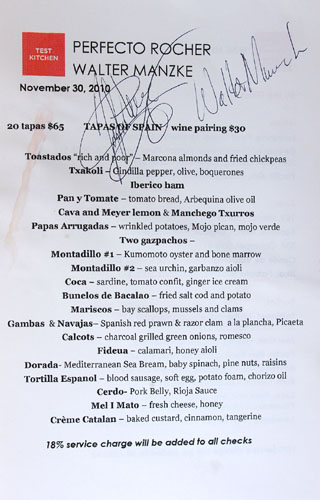 TEST
KITCHEN
PERFECTO ROCHER
WALTER MANZKE
November 30, 2010
20 tapas $65 TAPAS OF SPAIN wine pairing $30
Toastados "rich and poor" – Marcona almonds and fried chickpeas
Txakoli – Gindilla pepper, olive, boquerones
Iberico ham
Pan y Tomate – tomato bread, Arbequina olive oil
Cava and Meyer lemon & Manchego Txurros
Papas Arrugadas – wrinkled potatoes, Mojo pican, mojo verde
Two gazpachos –
Montadillo #1 – Kumomoto oyster and bone marrow
Montadillo #2 – sea urchin, garbanzo aioli
Coca – sardine, tomato confit, ginger ice cream
Bunelos de Bacalao – fried salt cod and potato
Mariscos – bay scallops, mussels and clams
Gambas & Navajas– Spanish red prawn & razor clam a la plancha, Picaeta
Calcots – charcoal grilled green onions, romesco
Fideua – calamari, honey aioli
Dorada- Mediterranean Sea Bream, baby spinach, pine nuts, raisins
Tortilla Espanol – blood sausage, soft egg, potato foam, chorizo oil
Cerdo- Pork Belly, Rioja Sauce
Mel I Mato – fresh cheese, honey
Crème Catalan – baked custard, cinnamon, tangerine
18% service charge will be added to all checks